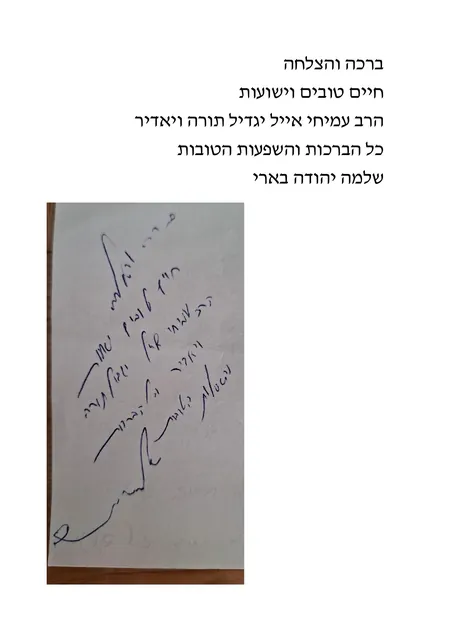 ברכה והצלחה
חיים טובים וישועות
הרב עמיחי אייל יגדיל תורה ויאדיר
כל הברכות והשפעות הטובות
שלמה יהודה בארי
ברכה והצלחה
חיים טובים וישועות
הרב עמיחי אייל יגדיל תורה
ויאדיר כל הברכות
והשפעות הטובות